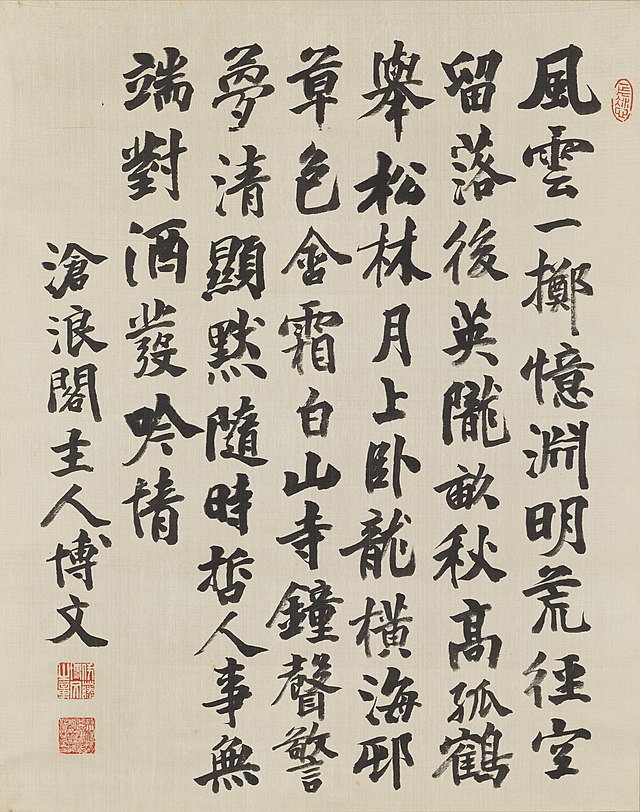 風雲一擲憶淵明荒徑空
留落後英隴畝秋髙孤鶴
舉松林月上卧龍橫海邨
草色含霜白山寺鐘聲警
夢清顯默隨時哲人事無
端對酒發吟情
滄浪閣主人博文